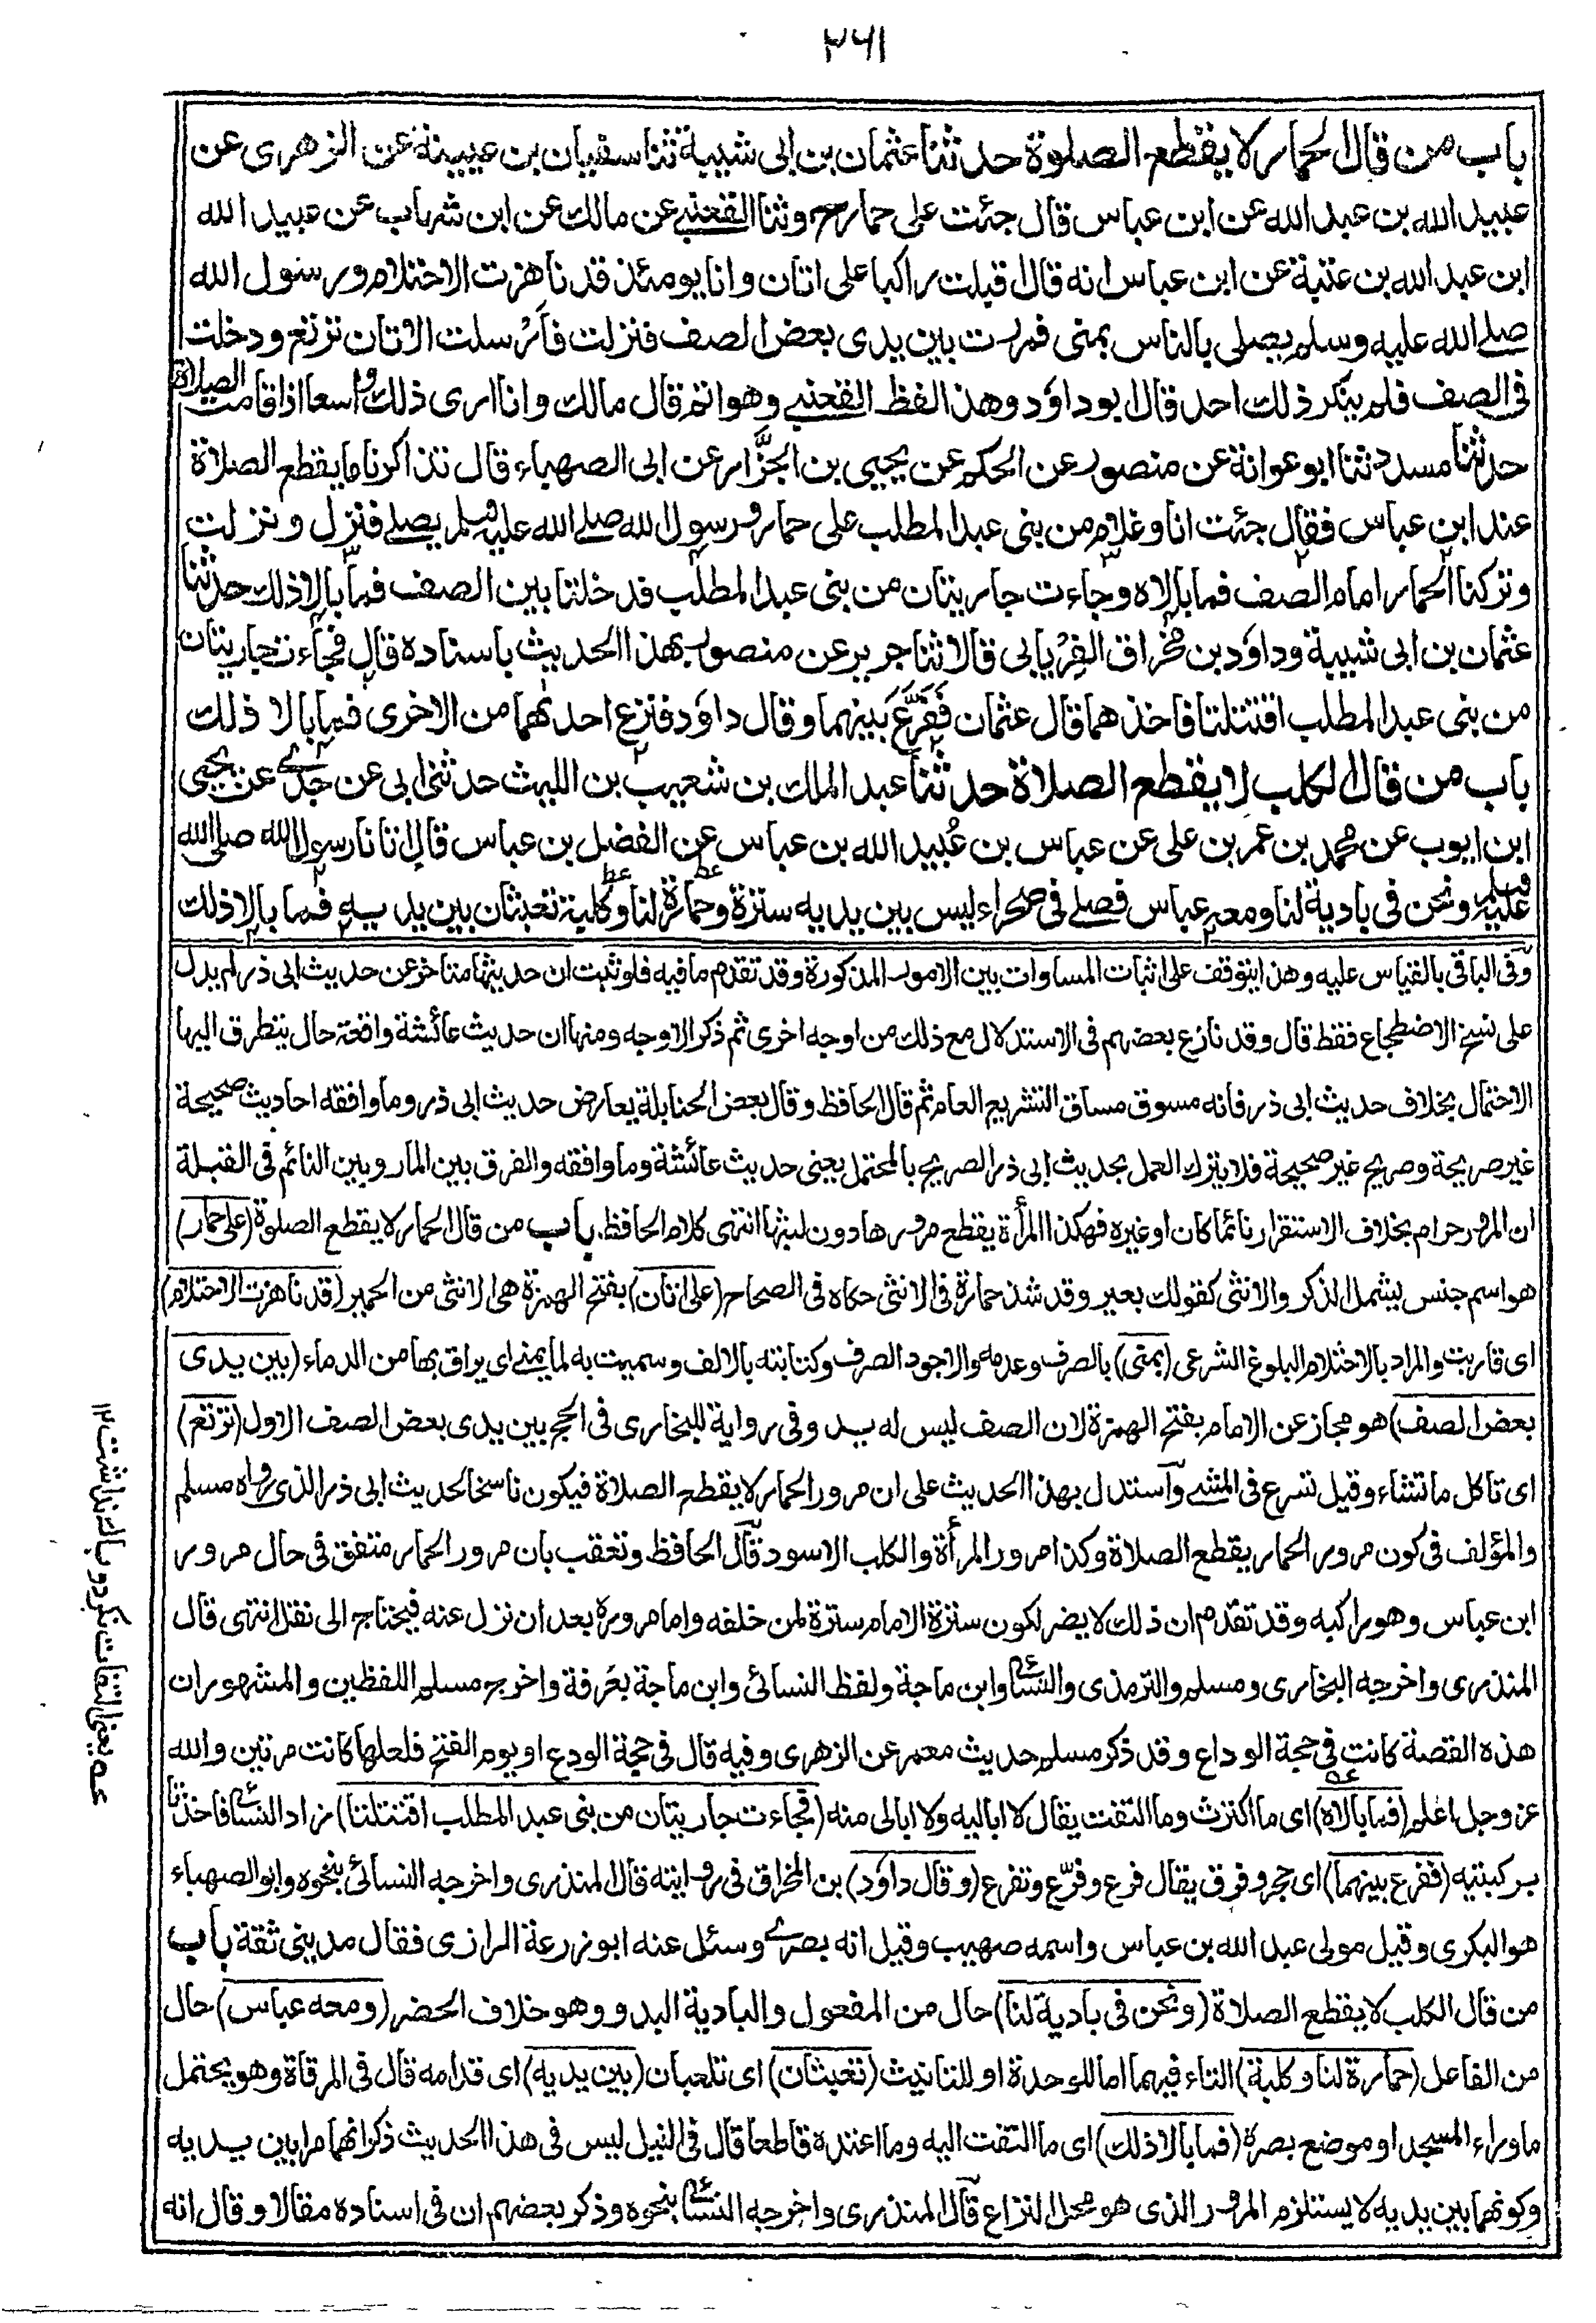 ٢٦١
باب من قال الحمار لا يقطع الصلوة حدثنا عثمان بن ابى شيبة ثنا سفيان بن عيينة عن الزهرى عن
عبيد الله بن عبد الله عن ابن عباس قال جئت على حمار ح وثنا القعنبى عن مالك عن ابن شهاب عن عبيد الله
ابن عبد الله بن عتبة عن ابن عباس انه قال اقبلت راكبا على اتان وانا يومئذ قد ناهزت الاحتلام ورسول الله
صلى الله عليه وسلم يصلى بالناس بمنى فمررت بين يدى بعض الصف فنزلت فأرسلت الاتان ترتع ودخلت
فى الصف فلم ينكر ذلك احد قال ابو داود وهذا لفظ القعنبى وهو اتم قال مالك وانا ارى ذلك واسعا اذا قامت الصلاة
حدثنا مسدد ثنا ابو عوانة عن منصور عن الحكم عن يحيى بن الجزار عن ابى الصهباء قال تذاكرنا ما يقطع الصلاة
عند ابن عباس فقال جئت انا وغلام من بنى عبد المطلب على حمار ورسول الله صلى الله عليه وسلم يصلى فنزل ونزلت
وتركنا الحمار امام الصف فما بالاه وجاءت جاريتان من بنى عبد المطلب فدخلتا بين الصف فما بالا ذلك حدثنا
عثمان بن ابى شيبة وداود بن مخراق الفريابى قالا ثنا جرير عن منصور بهذا الحديث باسناده قال فجاءت جاريتان
من بنى عبد المطلب اقتتلتا فاخذهما قال عثمان ففرع بينهما وقال داود فنزع احداهما من الاخرى فما بالا ذلك
باب من قال الكلب لا يقطع الصلاة حدثنا عبد الملك بن شعيب بن الليث حدثنى ابى عن جدى عن يحيى
ابن ايوب عن محمد بن عمر بن على عن عباس بن عبيد الله بن عباس عن الفضل بن عباس قال اتانا رسول الله صلى الله
عليه وسلم ونحن فى بادية لنا ومعه عباس فصلى فى صحراء ليس بين يديه سترة وحمارة لنا وكلبة تعبثان بين يديه فما بالا ذلك
وفى الباقى بالقياس عليه وهذا يتوقف على اثبات المساوات بين الامور المذكورة وقد تقدم ما فيه فلو ثبت ان حديثها متاخر عن حديث ابى ذر لم يدل
على نسخ الاضطجاع فقط قال وقد نازع بعضهم فى الاستدلال مع ذلك من اوجه اخرى ثم ذكر الاوجه ومنها ان حديث عائشة واقعة حال يتطرق اليها
الاحتمال بخلاف حديث ابى ذر فانه مسوق مساق التشريع العام ثم قال الحافظ وقال بعض الحنابلة يعارض حديث ابى ذر وما وافقه احاديث صحيحة
غير صريحة وصريح غير صحيحة فلا يترك العمل بحديث ابى ذر الصريح بالمحتمل يعنى حديث عائشة وما وافقه والفرق بين المار وبين النائم فى القبلة
ان المرور حرام بخلاف الاستقرار نائما كان او غيره فهكذا المرأة يقطع مرورها دون لبثها انتهى كلام الحافظ. باب من قال الحمار لا يقطع الصلوة (على حمار)
هو اسم جنس يشمل الذكر والانثى كقولك بعير وقد شذ حمارة فى الانثى حكاه فى الصحاح (على اتان) بفتح الهمزة هى الانثى من الحمير (قد ناهزت الاحتلام)
اى قاربت والمراد بالاحتلام البلوغ الشرعى (بمنى) بالصرف وعدمه والاجود الصرف وكتابته بالالف وسميت به لما يمنى اى يراق بها من الدماء (بين يدى
بعض الصف) هو مجاز عن الامام بفتح الهمزة لان الصف ليس له يد وفى رواية للبخارى فى الحج بين يدى بعض الصف الاول (ترتع)
اى تاكل ما تشاء وقيل تسرع فى المشى واستدل بهذا الحديث على ان مرور الحمار لا يقطع الصلاة فيكون ناسخا لحديث ابى ذر الذى رواه مسلم
والمؤلف فى كون مرور الحمار يقطع الصلاة وكذا مرور المرأة والكلب الاسود قال الحافظ وتعقب بان مرور الحمار متفق فى حال مرور
ابن عباس وهو راكبه وقد تقدم ان ذلك لا يضر لكون سترة الامام سترة لمن خلفه واما مروره بعد ان نزل عنه فيحتاج الى نقل انتهى قال
المنذرى واخرجه البخارى ومسلم والترمذى والنسائى وابن ماجة ولفظ النسائى وابن ماجة بعرفة واخرج مسلم اللفظين والمشهور ان
هذه القصة كانت فى حجة الوداع وقد ذكر مسلم حديث معمر عن الزهرى وفيه قال فى حجة الودع او يوم الفتح فلعلها كانت مرتين والله
عز وجل اعلم (فما بالاه) اى ما اكترث وما التفت يقال لا اباليه ولا ابالى منه (فجاءت جاريتان من بنى عبد المطلب اقتتلتا) زاد النسائى فاخذتا
بركبتيه (ففرع بينهما) اى حجز وفرق يقال فرع وفرّع وتفرع (وقال داود) بن المخراق فى روايته قال المنذرى واخرجه النسائى بنحوه وابو الصهباء
هو البكرى وقيل مولى عبد الله بن عباس واسمه صهيب وقيل انه بصرى وسئل عنه ابو زرعة الرازى فقال مدينى ثقة باب
من قال الكلب لا يقطع الصلاة (ونحن فى بادية لنا) حال من المفعول والبادية البدو وهو خلاف الحضر (ومعه عباس) حال
من الفاعل (حمارة لنا وكلبة) التاء فيهما اما للوحدة او للتانيث (تعبثان) اى تلعبان (بين يديه) اى قدامه قال فى المرقاة وهو يحتمل
ما وراء المسجد او موضع بصره (فما بالا ذلك) اى ما التفت اليه وما اعتده قاطعا قال فى النيل ليس فى هذا الحديث ذكر انهما مرا بين يديه
وكونهما بين يديه لا يستلزم المرور الذى هو محل النزاع قال المنذرى واخرجه النسائى بنحوه وذكر بعضهم ان فى اسناده مقالا وقال انه
عه يعنى التفات نكردو باك نداشت ١٢